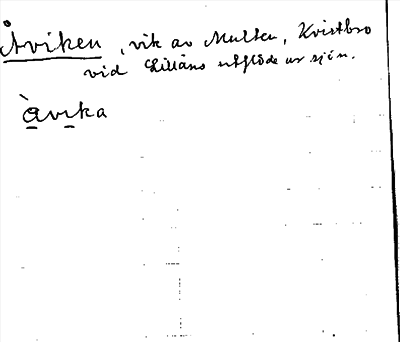 Åviken, vik av Multen, Kvistbro
vid Lillåns utflöde ur sjön.
àvika